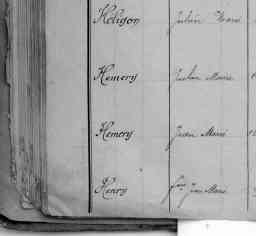 Héligon Julien Marie
Hemery Julien Marie
Hemery Jean Marie
Henry Jean Marie